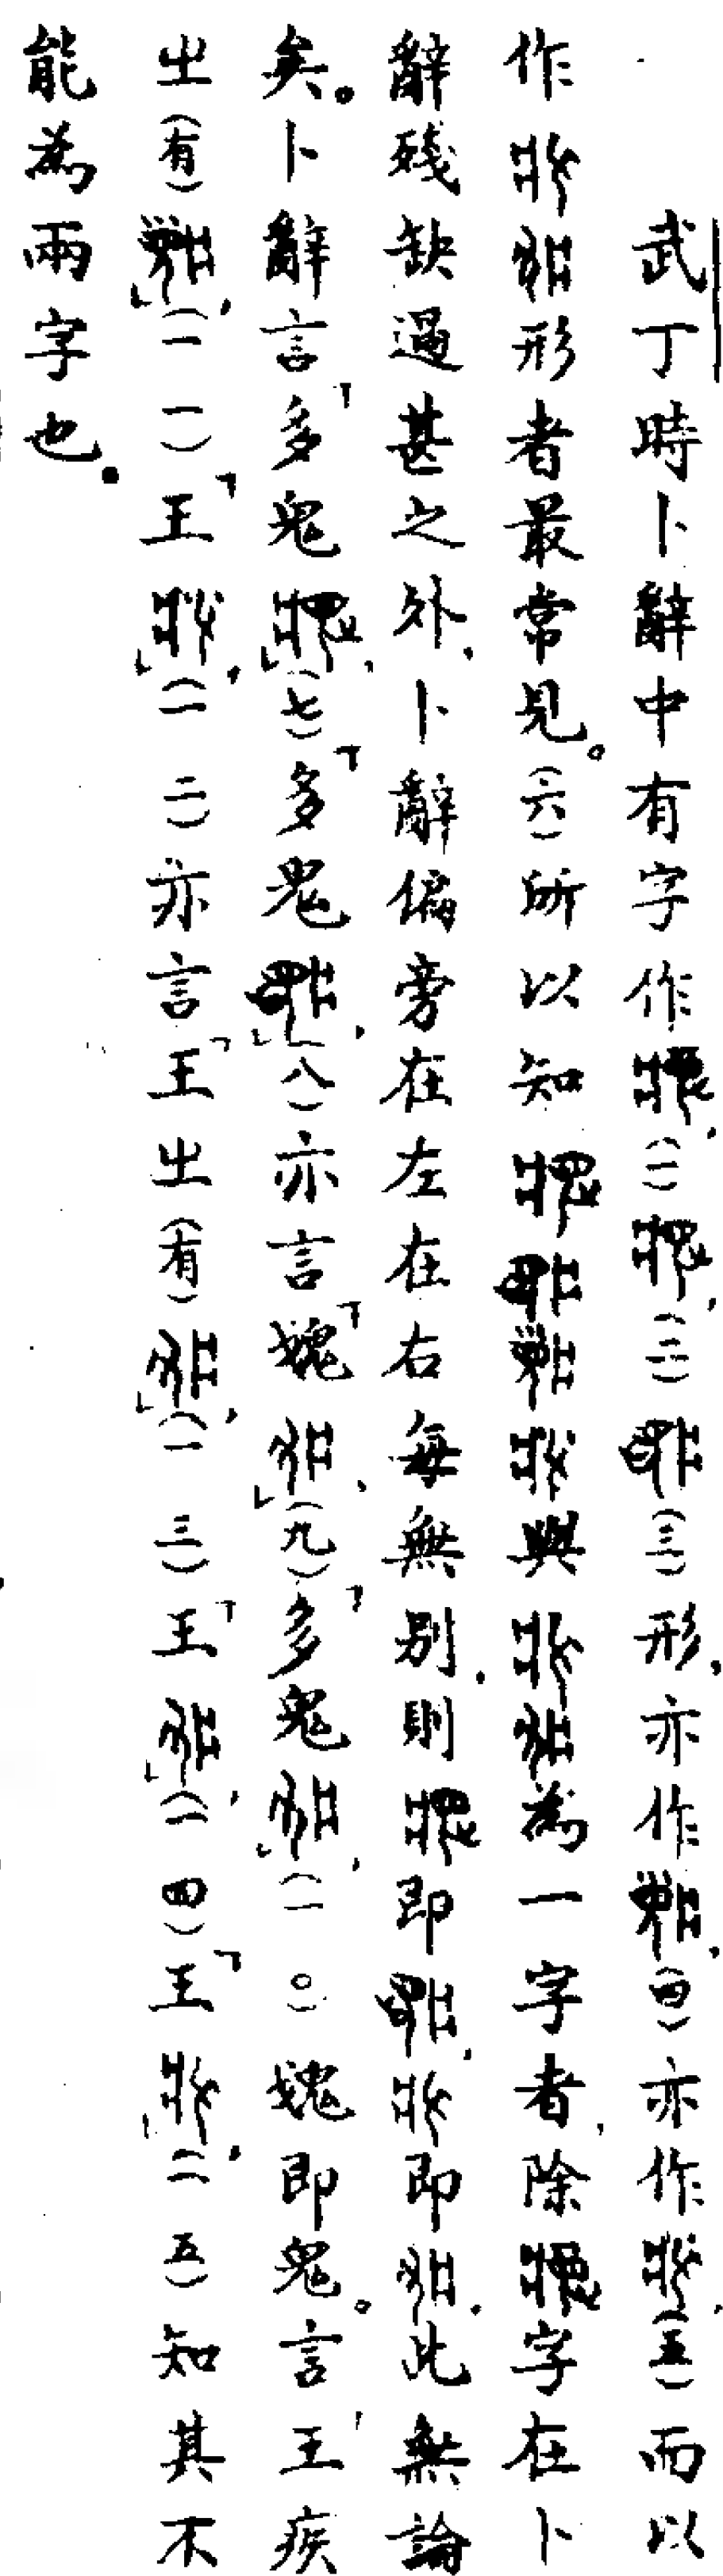 武丁時卜辭中有字作，（一），（二）（三）形，亦作，（四）亦作，（五）而以
作形者最常見。（六）所以知與為一字者，除字在卜
辭殘缺過甚之外，卜辭偏旁在左在右每無別，則即，即，此無論
矣。卜辭言「多鬼」，（七）「多鬼」，（八）亦言「媿」，（九）「多鬼」，（一〇）媿即鬼。言「王疾
㞢（有）」，（一一）「王」，（一二）亦言「王㞢（有）」，（一三）「王」，（一四）「王」，（一五）知其不
能為兩字也。